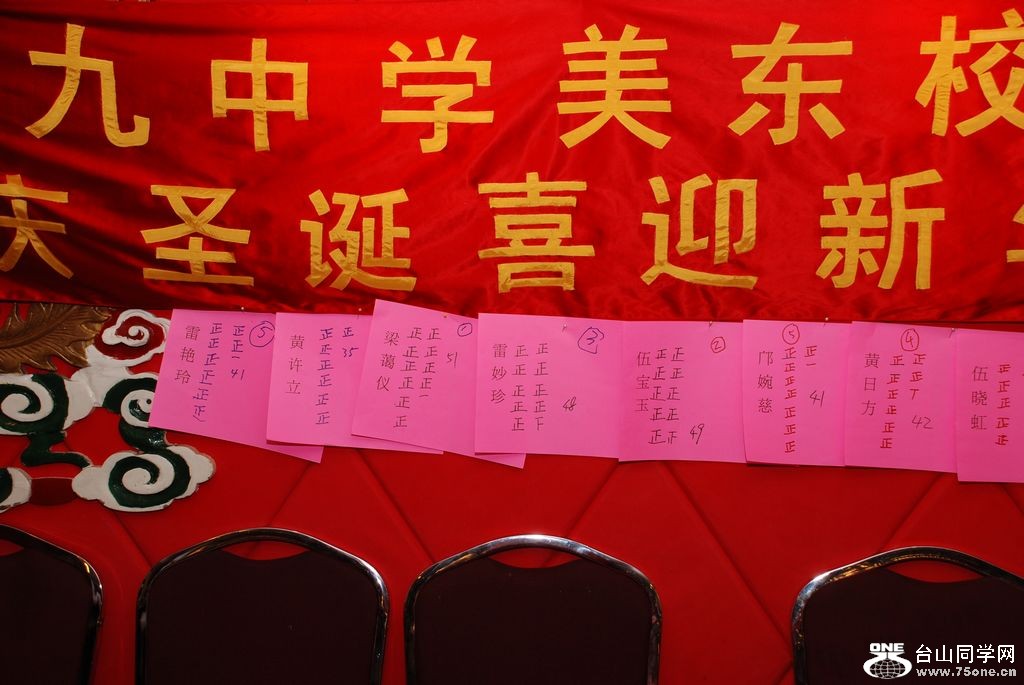 九中学美东校
庆圣诞喜迎新
雷艳玲 正正正正正正正正一 41 ⑤
黄许立 正正正正正正正 35
梁蔼仪 正正正正正正正正正正一 51 ①
雷妙珍 正正正正正正正正正下 48 ③
伍宝玉 正正正正正正正正正 49 ②
邝婉慈 正正正正正正正正一 41 ⑤
黄日方 正正正正正正正正丅 42 ④
伍晓虹 正正正正
ONE 台山同学网
www.75one.cn